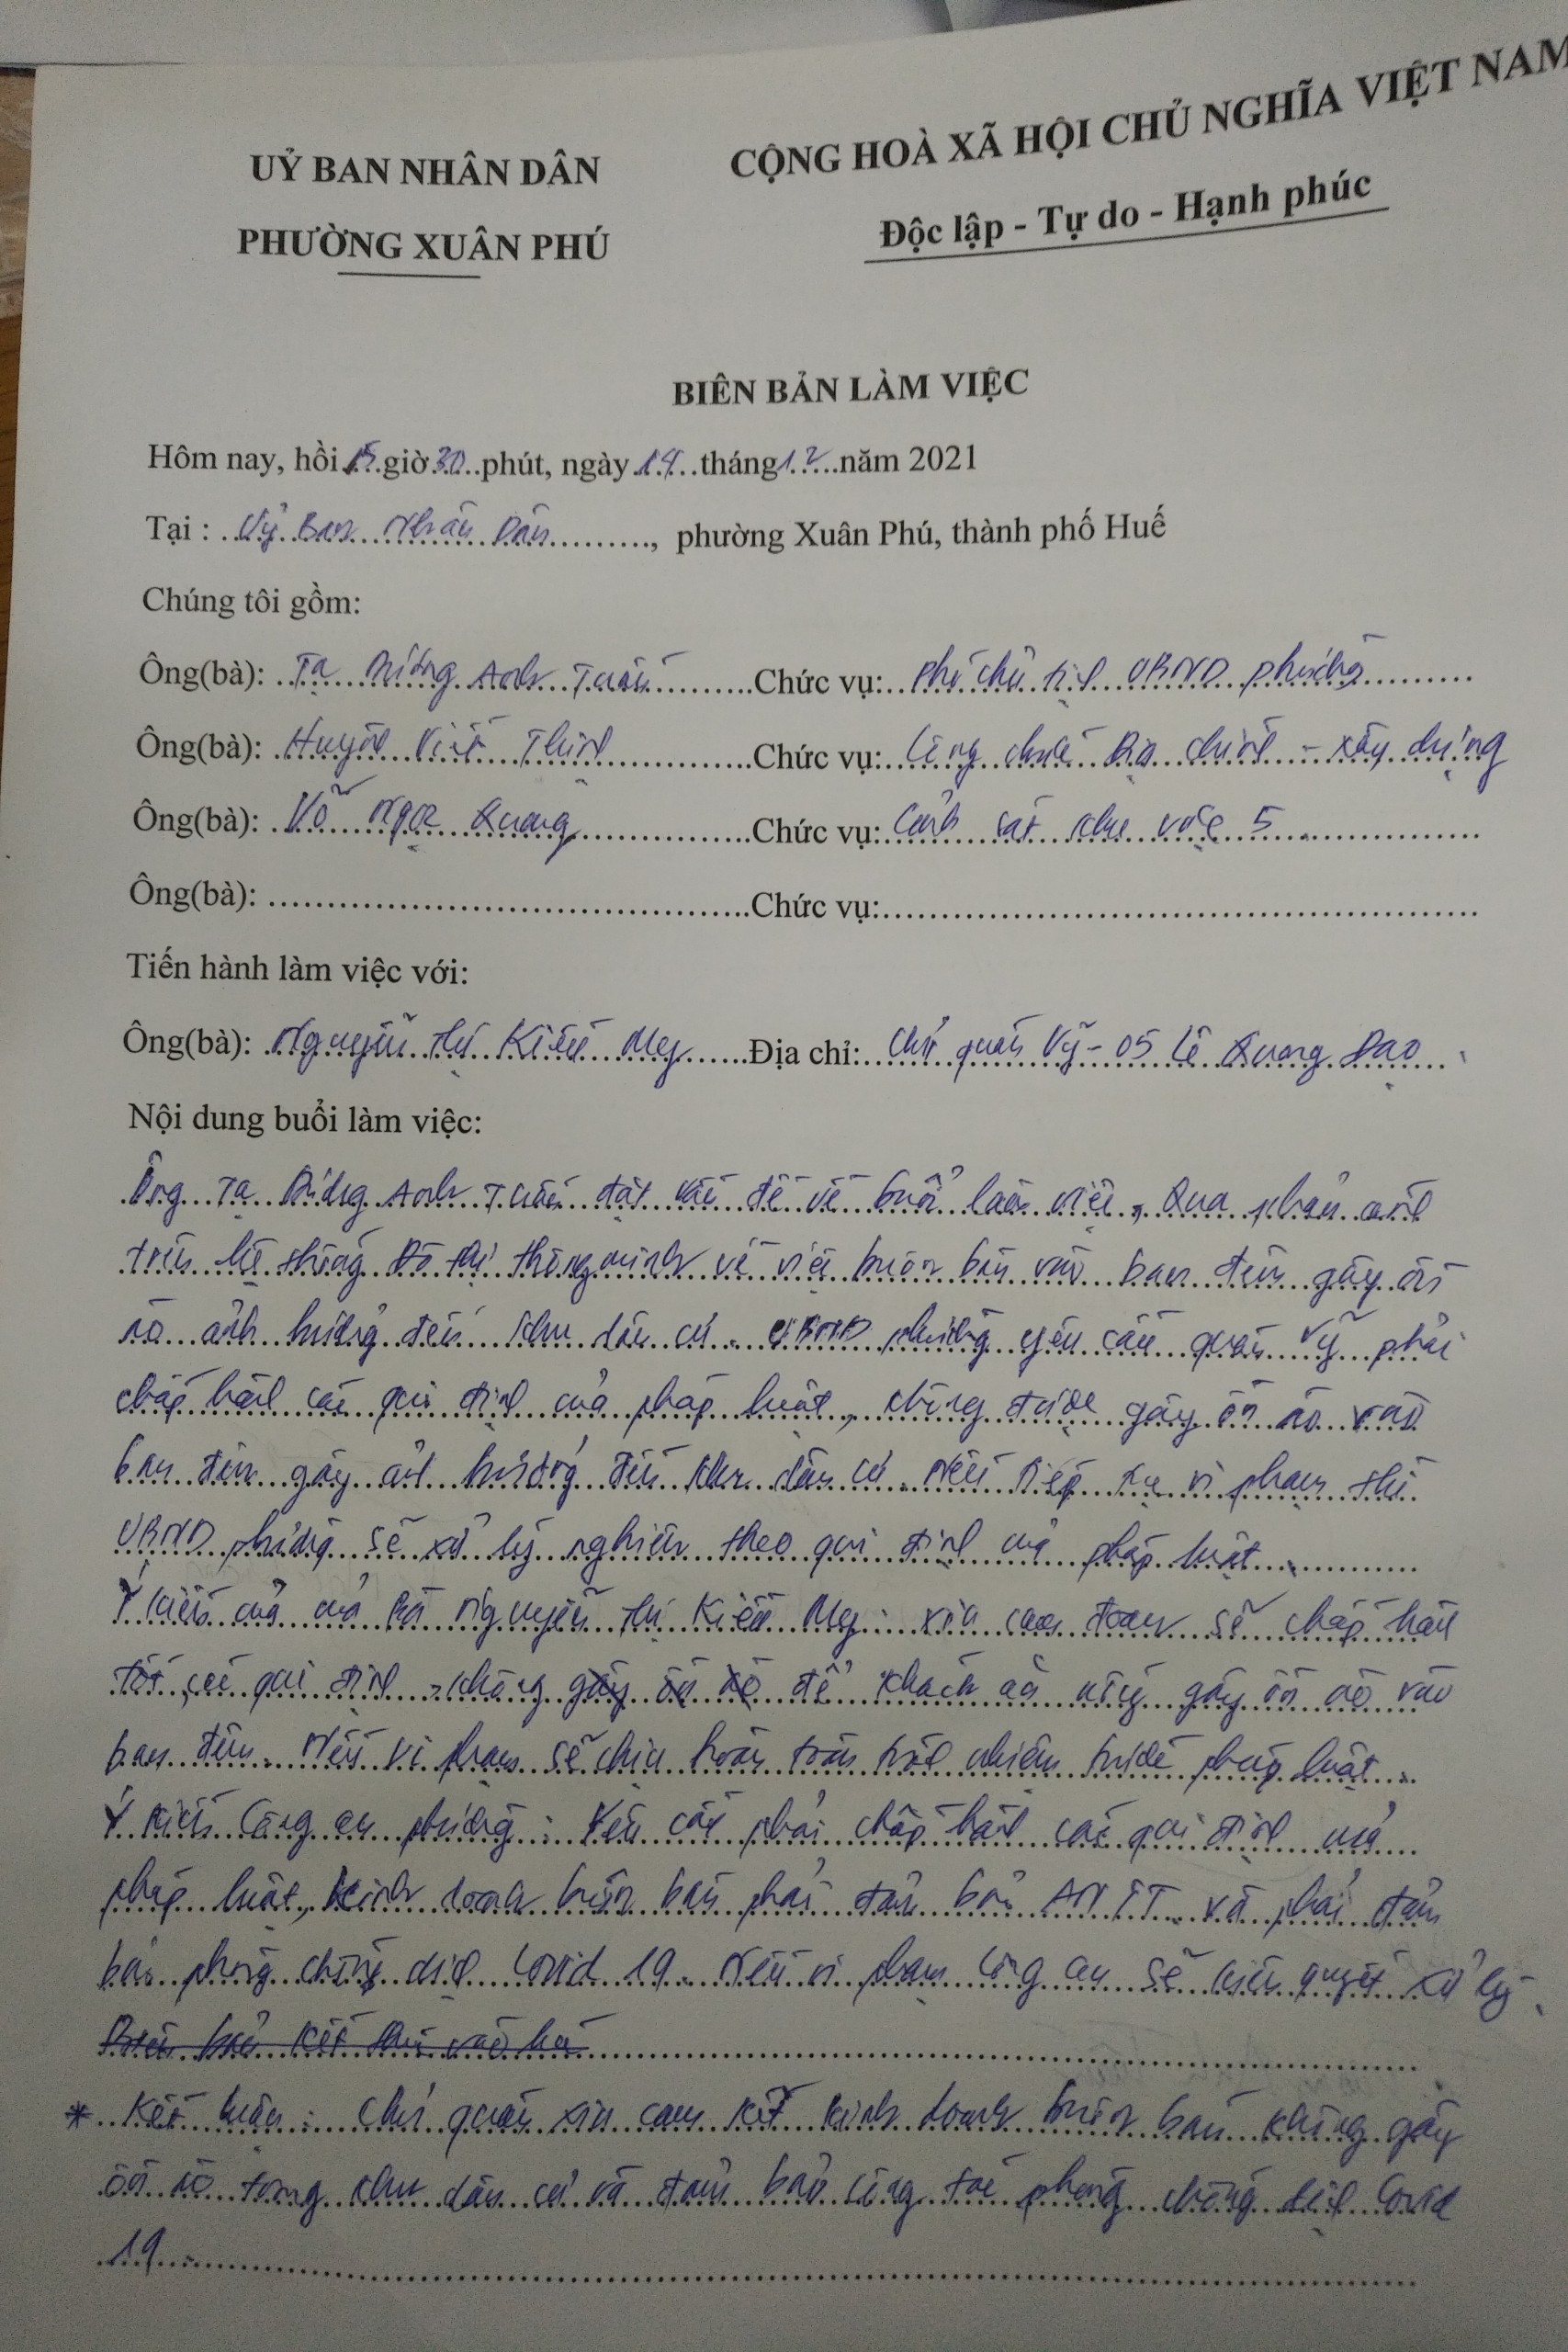 UỶ BAN NHÂN DÂN
PHƯỜNG XUÂN PHÚ
CỘNG HOÀ XÃ HỘI CHỦ NGHĨA VIỆT NAM
Độc lập - Tự do - Hạnh phúc
BIÊN BẢN LÀM VIỆC
Hôm nay, hồi 15 giờ 30 phút, ngày 14 tháng 12 năm 2021
Tại : Uỷ Ban Nhân Dân, phường Xuân Phú, thành phố Huế
Chúng tôi gồm:
Ông(bà): Tạ Dương Anh Tuấn Chức vụ: Phó chủ tịch UBND phường
Ông(bà): Huỳnh Viết Thịnh Chức vụ: Công chức Địa chính - xây dựng
Ông(bà): Võ Ngọc Quang Chức vụ: Cảnh sát khu vực 5
Ông(bà): Chức vụ:
Tiến hành làm việc với:
Ông(bà): Nguyễn Thị Kiều My Địa chỉ: Chủ quán Vỹ - 05 Lê Quang Đạo
Nội dung buổi làm việc:
Ông Tạ Dương Anh Tuấn đặt vấn đề về buổi làm việc, Qua phản ánh
trên hệ thống Đô thị thông minh về việc buôn bán vào ban đêm gây ồn
ào ảnh hưởng đến khu dân cư. UBND phường yêu cầu quán Vỹ phải
chấp hành các qui định của pháp luật, không được gây ồn ào vào
ban đêm gây ảnh hưởng đến khu dân cư. Nếu tiếp tục vi phạm thì
UBND phường sẽ xử lý nghiêm theo qui định của pháp luật.
Ý kiến của của bà Nguyễn Thị Kiều My: xin cam đoan sẽ chấp hành
tốt các qui định, không gây ồn ào để khách ăn uống gây ồn ào vào
ban đêm. Nếu vi phạm sẽ chịu hoàn toàn trách nhiệm trước pháp luật.
Ý kiến Công an phường: Yêu cầu phải chấp hành các qui định của
pháp luật, Kinh doanh buôn bán phải đảm bảo ANTT và phải đảm
bảo phòng chống dịch Covid 19. Nếu vi phạm Công an sẽ kiên quyết xử lý.
Biên bản kết thúc vào hồi
* Kết luận: Chủ quán xin cam kết kinh doanh buôn bán không gây
ồn ào trong khu dân cư và đảm bảo công tác phòng chống dịch Covid
19.